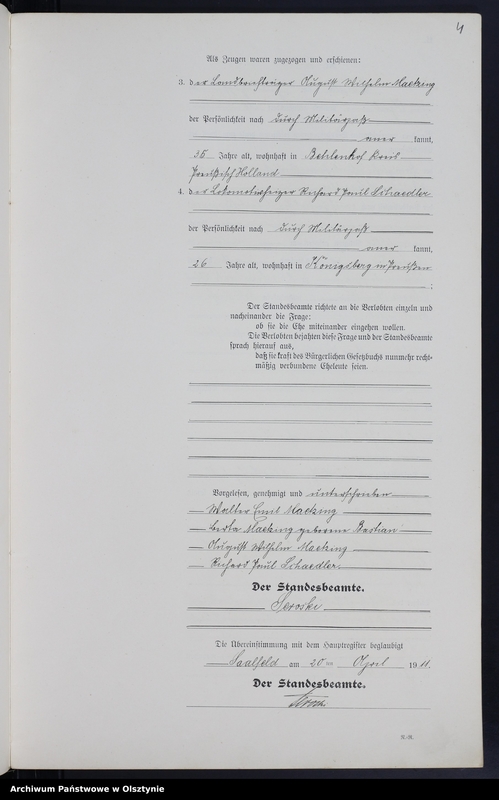 4
Als Zeugen waren zugezogen und erschienen:
3. der Landbriefträger August Wilhelm Macking
der Persönlichkeit nach durch Militärpaß
aner kannt,
Jahre alt, wohnhaft in Kreis
Preußisch Holland
4. der Lokomotivheizer Richard Paul Schaedler
der Persönlichkeit nach durch Militärpaß
aner kannt,
26 Jahre alt, wohnhaft in Königsberg in Preußen
;
Der Standesbeamte richtete an die Verlobten einzeln und
nacheinander die Frage:
ob sie die Ehe miteinander eingehen wollen.
Die Verlobten bejahten diese Frage und der Standesbeamte
sprach hierauf aus,
daß sie kraft des Bürgerlichen Gesetzbuchs nunmehr recht-
mäßig verbundene Eheleute seien.
Vorgelesen, genehmigt und unterschrieben
Walter Emil Macking
Berta Macking geborene Bastian
August Wilhelm Macking
Richard Paul Schaedler
Der Standesbeamte.
Die Übereinstimmung mit dem Hauptregister beglaubigt
Saalfeld am 20ten April 1911.
Der Standesbeamte.
Archiwum Państwowe w Olsztynie